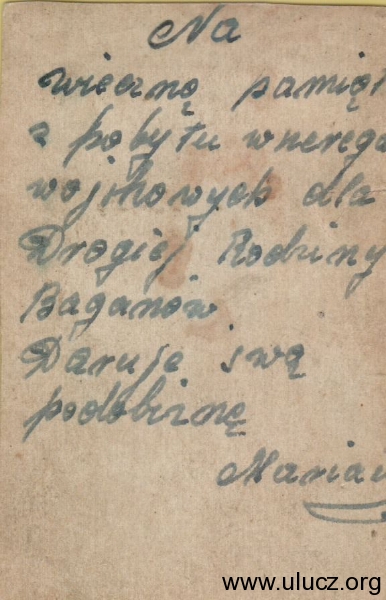 Na
wieczną pamiąt
z pobytu w szerega
wojskowych dla
Drogiej Rodziny
Baganów
Daruje swą
podobiznę
Marian
www.ulucz.org